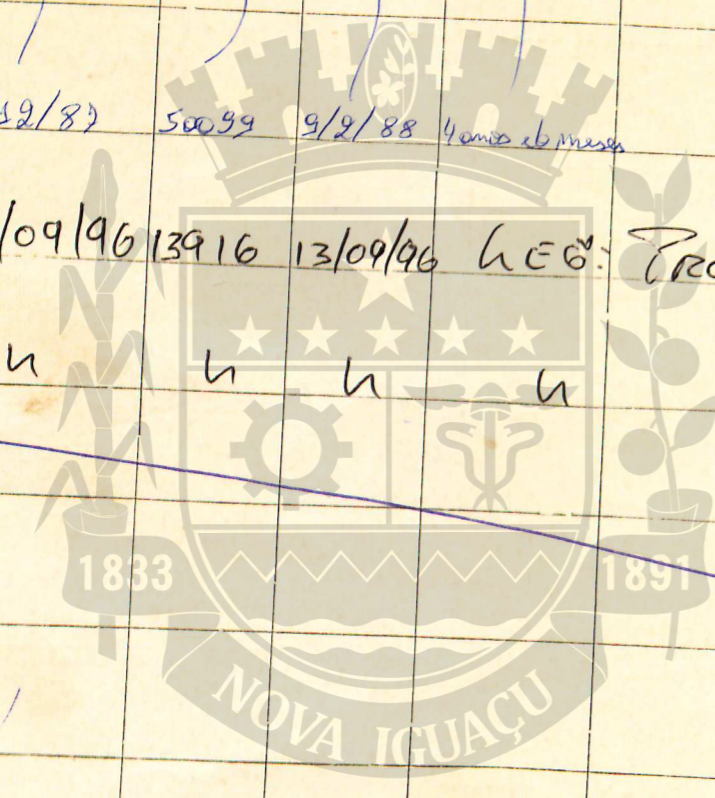 12/87 50099 9/2/88 4 anos e 6 meses
/09/96 13916 13/09/96
1833 1891
NOVA IGUAÇU